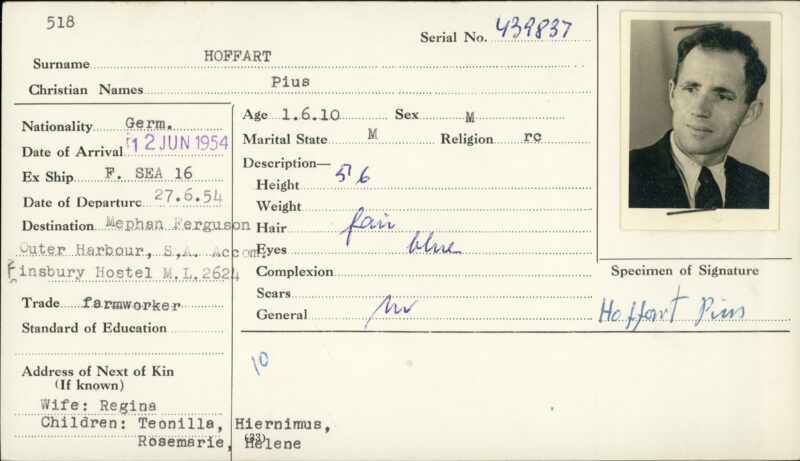 518
Serial No. 439837
Surname HOFFART
Christian Names Pius
Nationality Germ.
Date of Arrival 12 JUN 1954
Ex Ship F. SEA 16
Date of Departure 27.6.54
Destination Mephan Ferguson
Outer Harbour, S,A. Accom.
Finsbury Hostel M.L.2624
Trade farmworker
Standard of Education
Address of Next of Kin
(If known)
Wife: Regina
Children: Teonilla, Hiernimus,
Rosemarie, Helene
(33)
Age 1.6.10 Sex M
Marital State M Religion rc
Description—
Height 5 6
Weight
Hair fair
Eyes blue
Complexion
Scars
General
10
Specimen of Signature
Hoffart Pius